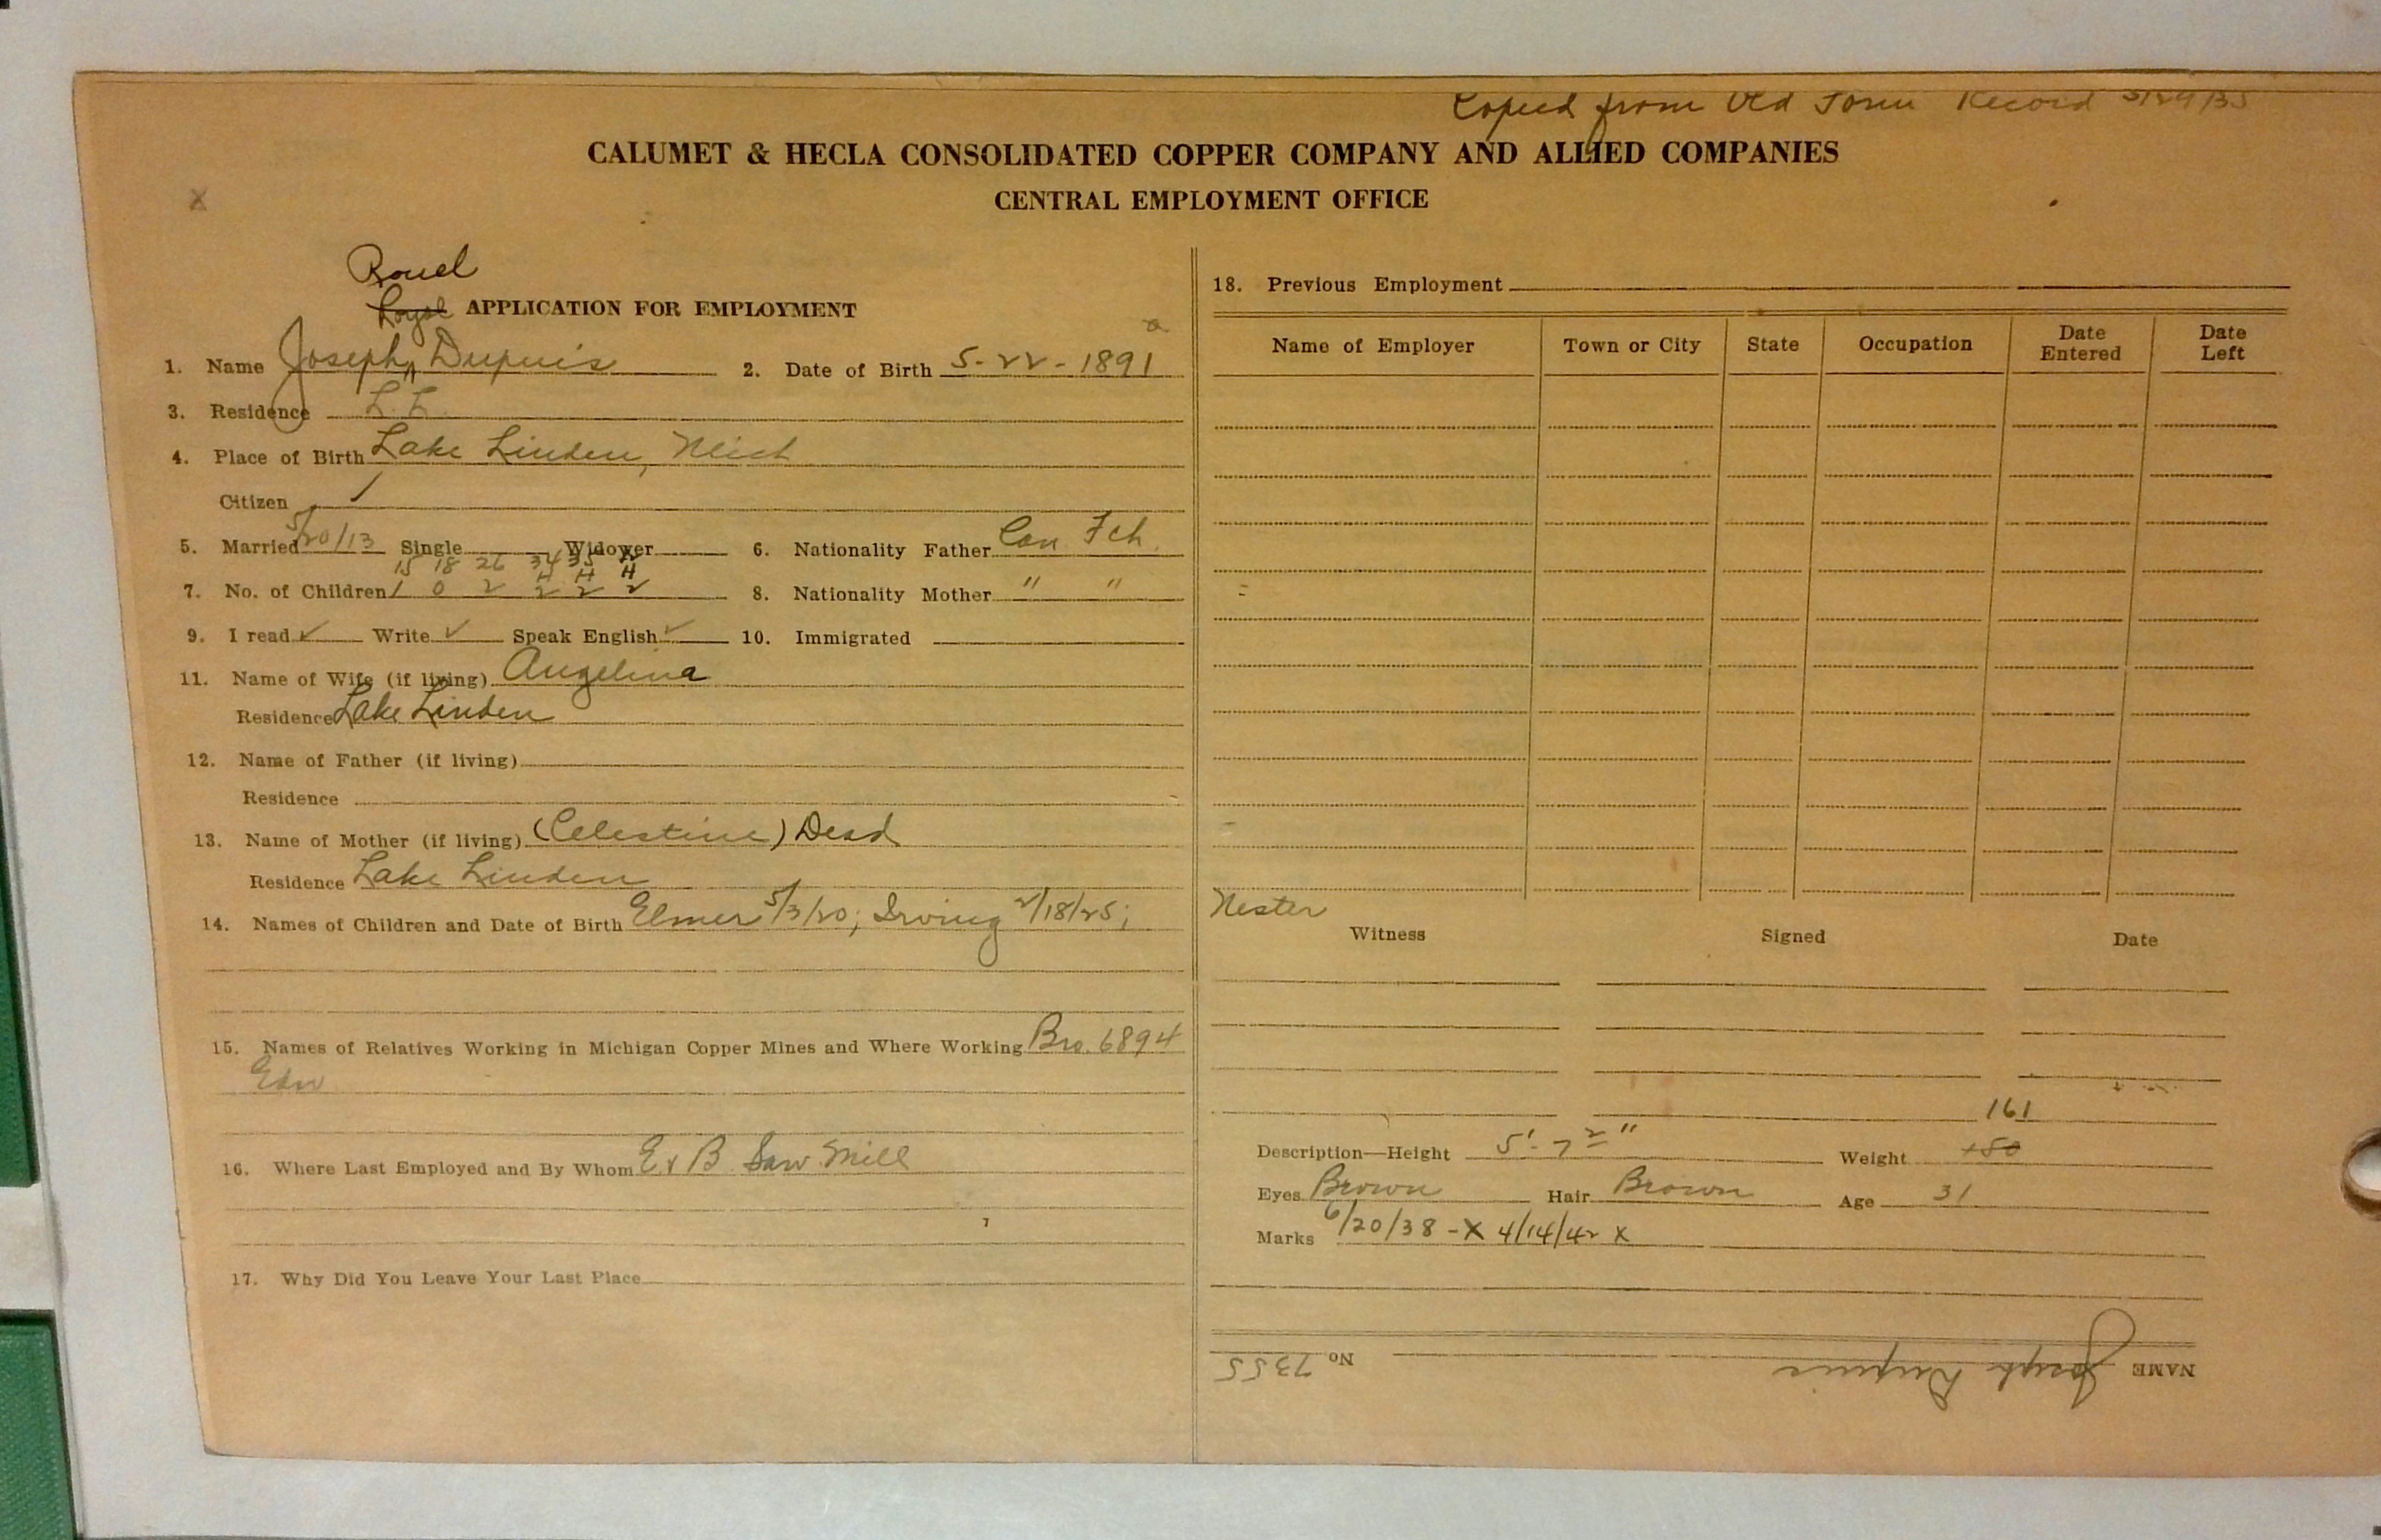 Copied from Old Form Record 3/29/35
CALUMET & HECLA CONSOLIDATED COPPER COMPANY AND ALLIED COMPANIES
CENTRAL EMPLOYMENT OFFICE
X
APPLICATION FOR EMPLOYMENT
1. Name Joseph Dupuis 2. Date of Birth 5-22-1891
3. Residence L. L.
4. Place of Birth Lake Linden, Mich
Citizen ✓
5. Married 5/20/13 Single Widower 6. Nationality Father Can Fch.
15 18 26 34 35
H H H
7. No. of Children 1 0 2 2 2 2 8. Nationality Mother " "
9. I read ✓ Write ✓ Speak English ✓ 10. Immigrated
11. Name of Wife (if living) Angelina
Residence Lake Linden
12. Name of Father (if living)
Residence
13. Name of Mother (if living) (Celestine) Dead
Residence Lake Linden
14. Names of Children and Date of Birth Elmer 5/3/20; Irving 2/18/25;
15. Names of Relatives Working in Michigan Copper Mines and Where Working Bro. 6894
Edw
16. Where Last Employed and By Whom E & B Saw Mill
17. Why Did You Leave Your Last Place
18. Previous Employment
Name of Employer Town or City State Occupation Date Entered Date Left
Nester
Witness Signed Date
161
Description—Height 5'-7 2/" Weight 150
Eyes Brown Hair Brown Age 31
Marks 6/20/38 -X 4/14/42 X
NAME Joseph Dupuis No 7355